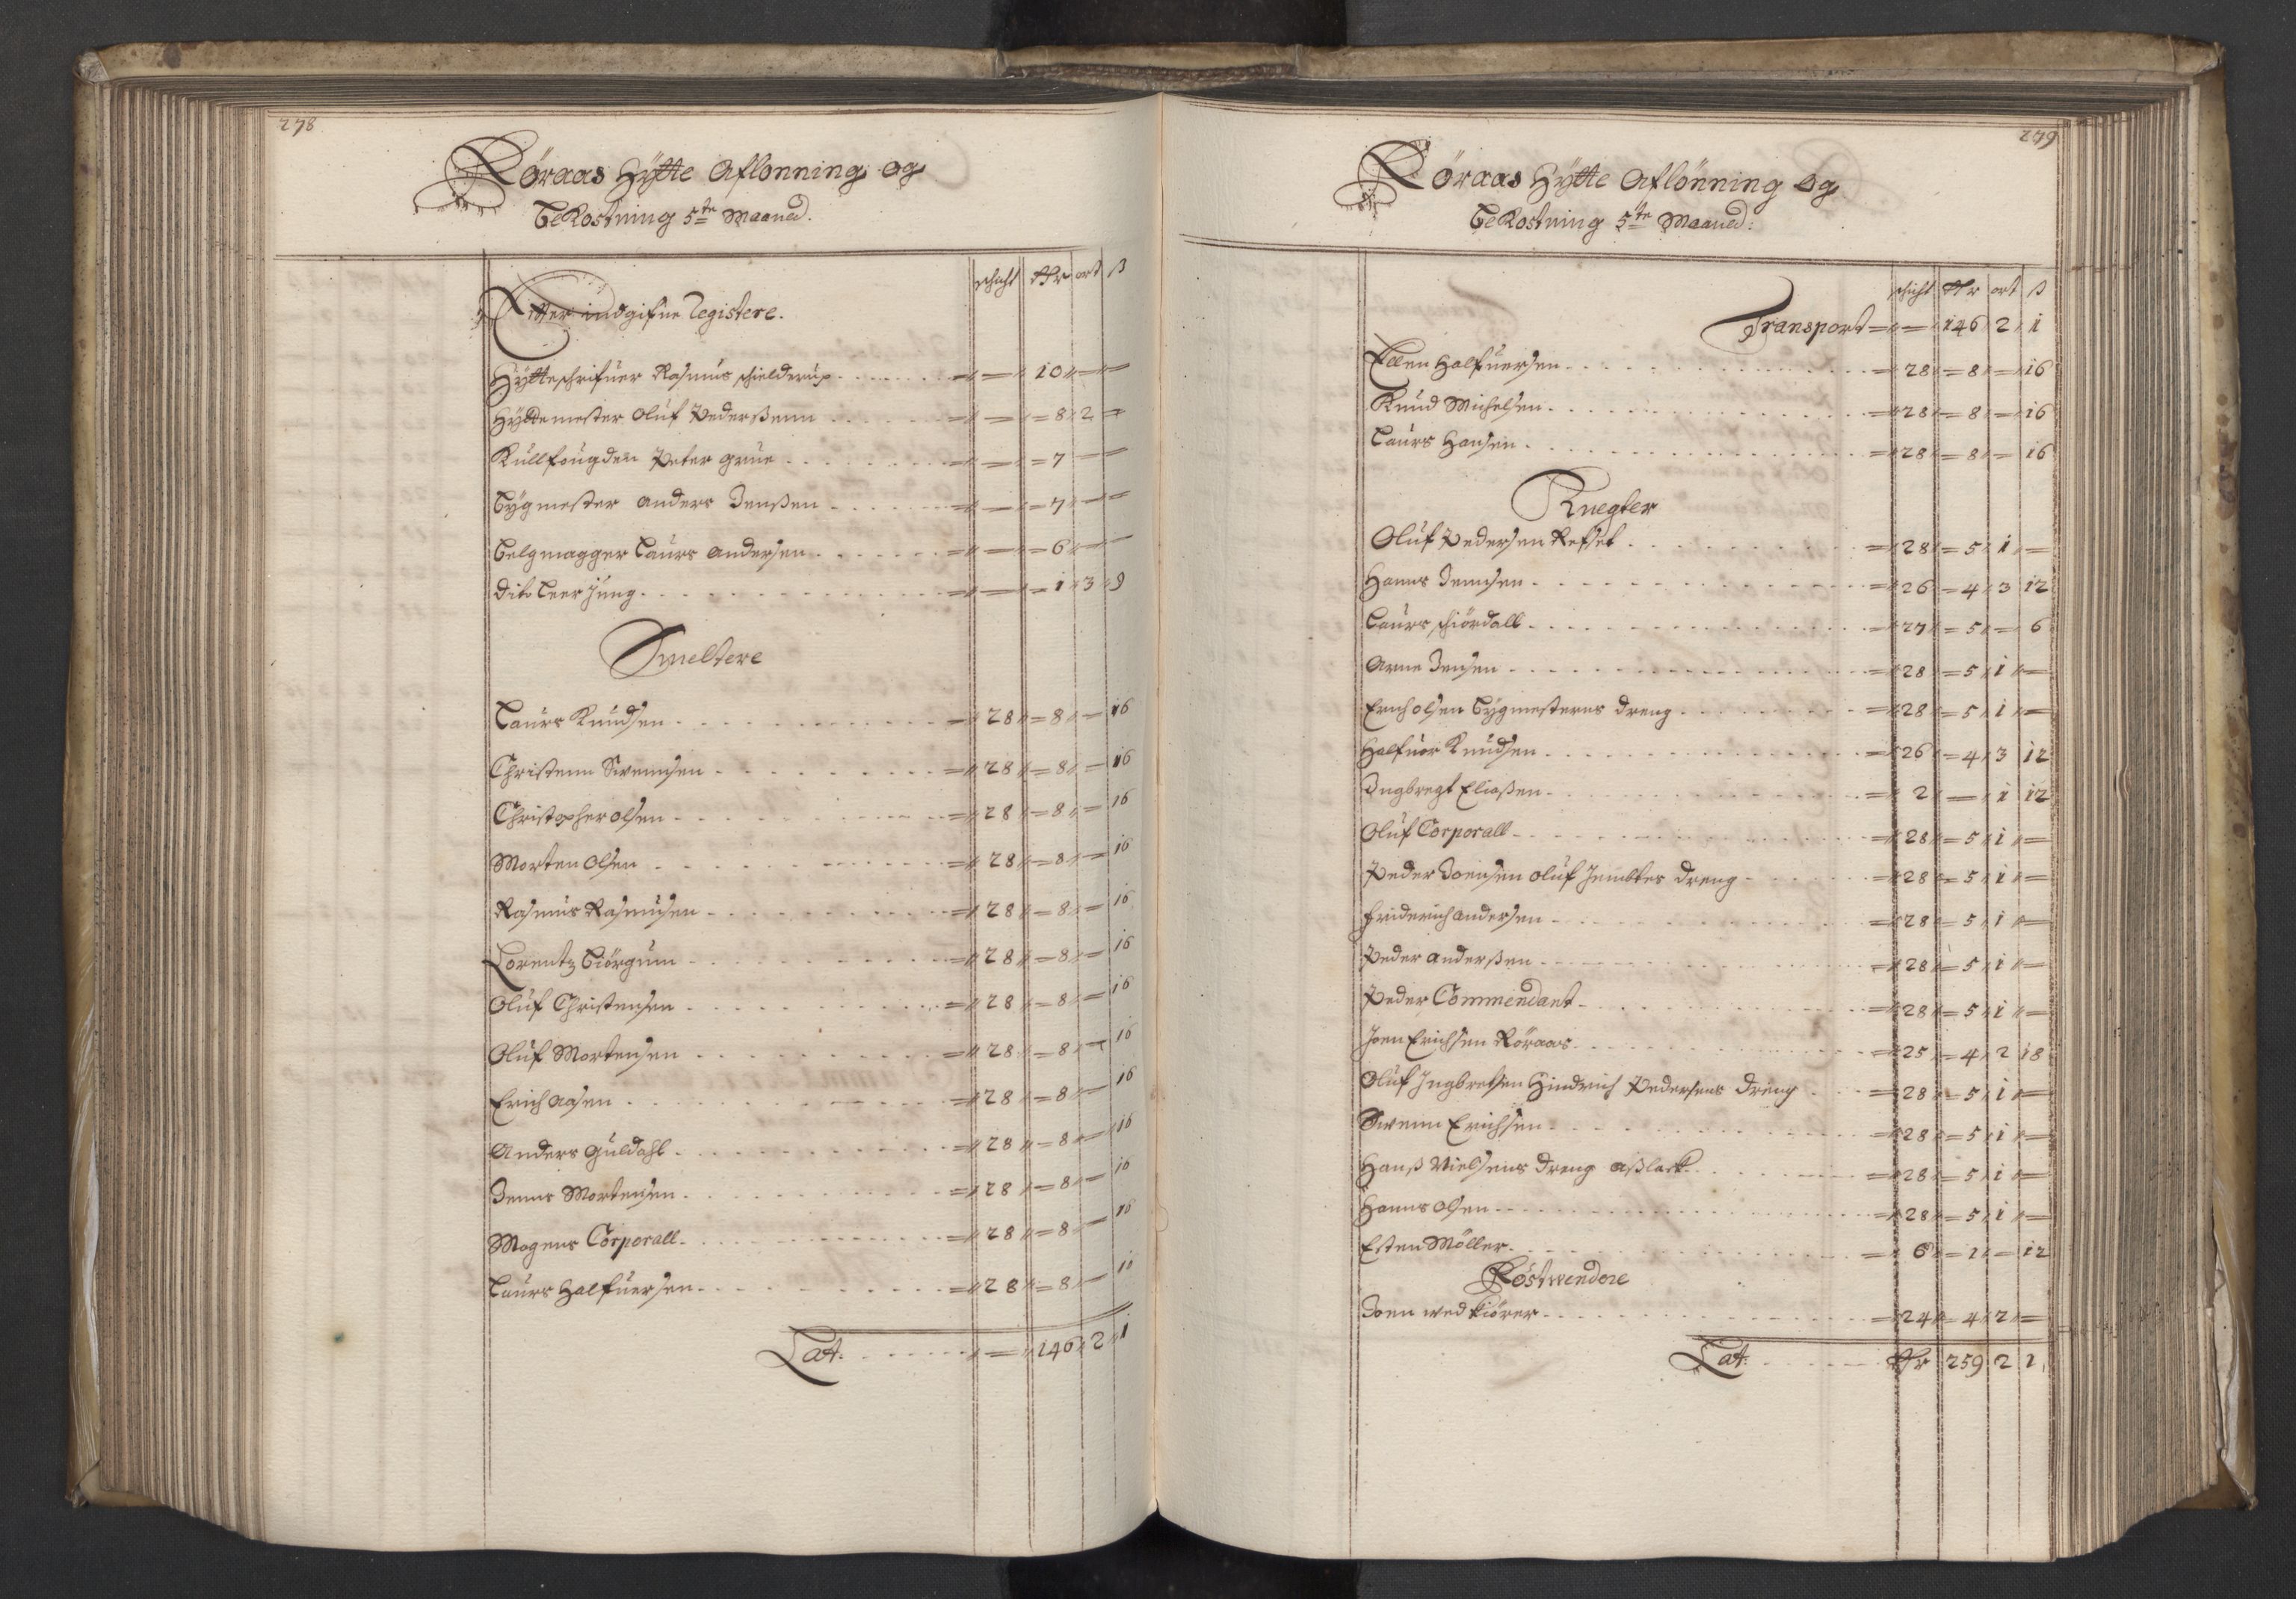 278
Röraas Hÿtte Aflonning og
Bekostning 5te Maaned.
schicht Rdr ort ß
Efter indgifne Registere.
Hÿtteschrifuer Rasmus schielderup = — 10 — —
Hÿttemester Oluf Pederßenn = — 8 2 —
Kullfougden Peter Grue = — 7 — —
Bÿgmester Anders Jenßen = — 7 — —
Belgmagger Laurs Andersen = — 6 — —
Dito Leer Jung = — 1 3 9
Smeltere
Laurs Knudsen = 28 = 8 — 16
Christenn Svennsen = 28 = 8 — 16
Christopher Olsen = 28 = 8 — 16
Morten Olsen = 28 = 8 — 16
Rasmus Rasmusen = 28 = 8 — 16
Lorentz Biörgum = 28 = 8 — 16
Oluf Christensen = 28 = 8 — 16
Oluf Mortensen = 28 = 8 — 16
Erich Aasen = 28 = 8 — 16
Anders Guldahl = 28 = 8 — 16
Jenns Mortensen = 28 = 8 — 16
Mogens Corporall = 28 = 8 — 16
Laurs Halfuersen = 28 = 8 — 16
Lat. = — 146 2 1
279
Röraas Hÿtte Aflönning og
Bekostning 5te Maaned:
schicht Rdr ort ß
Transport = — 146 2 1
Ellen Halfuersen = 28 = 8 — 16
Knud Michelsen = 28 = 8 — 16
Laurs Hansen = 28 = 8 — 16
Knegter
Oluf Pedersen Refset = 28 = 5 1 —
Hanns Jennsen = 26 = 4 3 12
Laurs schiördall = 27 = 5 — 6
Arne Jensen = 28 = 5 1 —
Erich Olsen Bÿgmesterns dreng = 28 = 5 1 —
Halfuor Knudsen = 26 = 4 3 12
Ingbregt Eliaßen = 2 — 1 12
Oluf Corporall = 28 = 5 1 —
Peder Joensen Oluf Jembtes dreng = 28 = 5 1 —
Friderich Andersen = 28 = 5 1 —
Peder Anderßen = 28 = 5 1 —
Peder Commendant = 28 = 5 1 —
Joen Erichsen Röraas = 25 = 4 2 18
Oluf Ingbretsen Hindrich Pedersens dreng = 28 = 5 1 —
Svenn Erichsen = 28 = 5 1 —
Hanß Nielsens dreng Aßlack = 28 = 5 1 —
Hanns Olsen = 28 = 5 1 —
Esten Möller = 6 = 1 — 12
Röstwendere
Joen wedkiörer = 24 = 4 2 —
Lat: Rdr 259 2 1